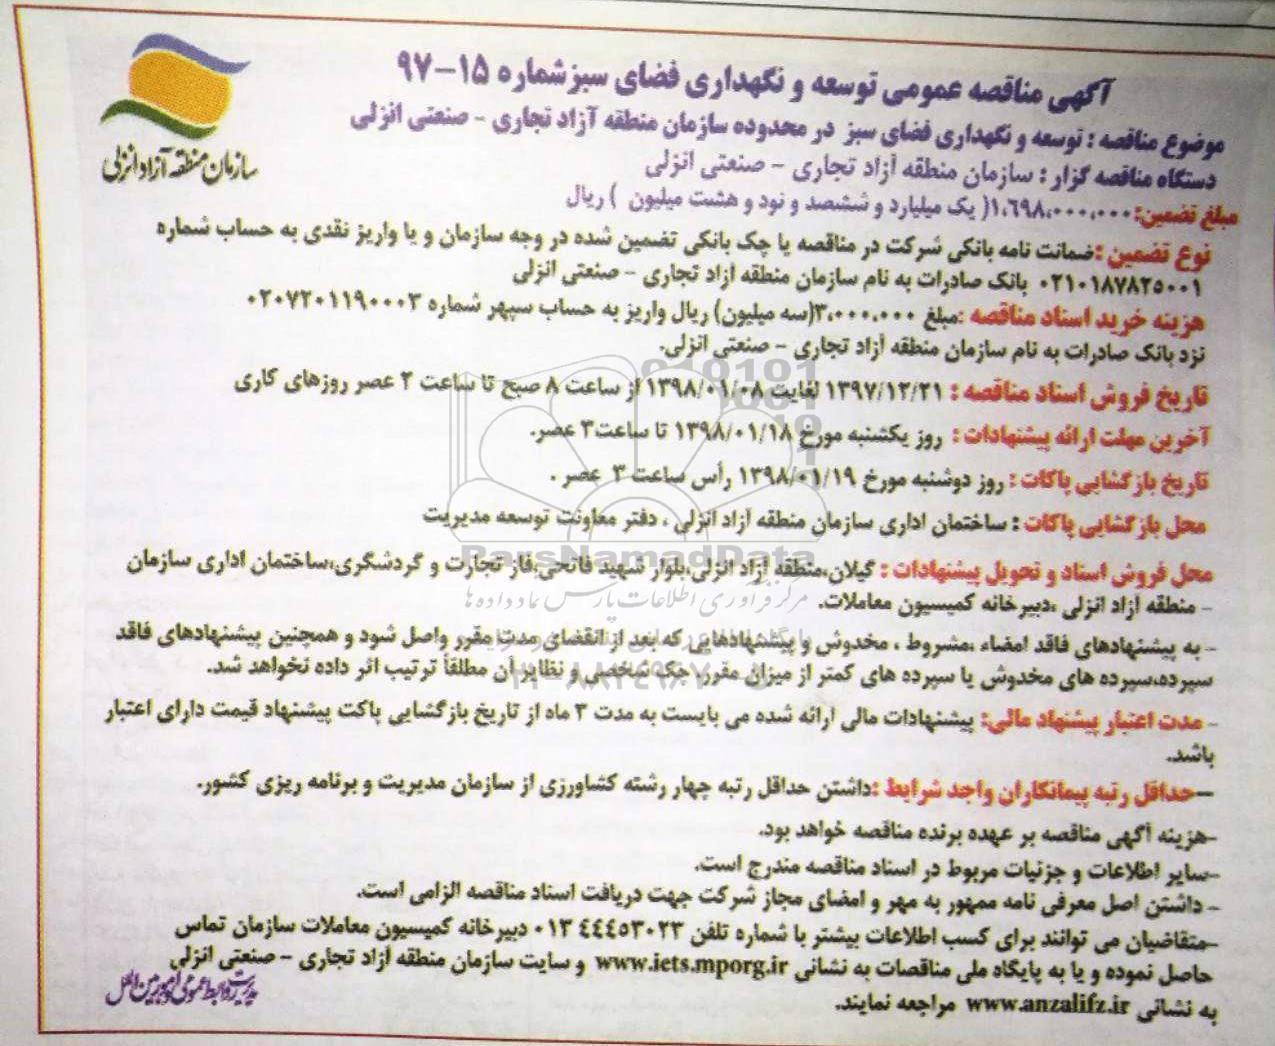 سازمان منطقه آزاد انزلی
آگهی مناقصه عمومی توسعه و نگهداری فضای سبز شماره ۱۵-۹۷
موضوع مناقصه : توسعه و نگهداری فضای سبز در محدوده سازمان منطقه آزاد تجاری - صنعتی انزلی
دستگاه مناقصه گزار : سازمان منطقه آزاد تجاری - صنعتی انزلی
مبلغ تضمین: ۱،۶۹۸،۰۰۰،۰۰۰( یک میلیارد و ششصد و نود و هشت میلیون ) ریال
نوع تضمین :ضمانت نامه بانکی شرکت در مناقصه یا چک بانکی تضمین شده در وجه سازمان و یا واریز نقدی به حساب شماره
۰۲۱۰۱۸۷۸۲۵۰۰۱ بانک صادرات به نام سازمان منطقه آزاد تجاری - صنعتی انزلی
هزینه خرید اسناد مناقصه :مبلغ ۳،۰۰۰،۰۰۰(سه میلیون) ریال واریز به حساب سپهر شماره ۰۲۰۷۲۰۱۱۹۰۰۰۳
نزد بانک صادرات به نام سازمان منطقه آزاد تجاری - صنعتی انزلی.
تاریخ فروش اسناد مناقصه : ۱۳۹۷/۱۲/۲۱ لغایت ۱۳۹۸/۰۱/۰۸ از ساعت ۸ صبح تا ساعت ۲ عصر روزهای کاری
آخرین مهلت ارائه پیشنهادات : روز یکشنبه مورخ ۱۳۹۸/۰۱/۱۸ تا ساعت۳ عصر.
تاریخ بازگشایی پاکات : روز دوشنبه مورخ ۱۳۹۸/۰۱/۱۹ رأس ساعت ۳ عصر .
محل بازگشایی پاکات : ساختمان اداری سازمان منطقه آزاد انزلی ، دفتر معاونت توسعه مدیریت
ParsNamadData
محل فروش اسناد و تحویل پیشنهادات : گیلان،منطقه آزاد انزلی،بلوار شهید فاتحی،فاز تجارت و گردشگری،ساختمان اداری سازمان
- منطقه آزاد انزلی ،دبیرخانه کمیسیون معاملات.
مرکز فرآوری اطلاعات پارس نماد داده ها
- به پیشنهادهای فاقد امضاء ،مشروط ، مخدوش و پیشنهادهایی که بعد از انقضای مدت مقرر واصل شود و همچنین پیشنهادهای فاقد
سپرده،سپرده های مخدوش یا سپرده های کمتر از میزان مقرر، چک شخصی و نظایر آن مطلقاً ترتیب اثر داده نخواهد شد.
- مدت اعتبار پیشنهاد مالی: پیشنهادات مالی ارائه شده می بایست به مدت ۳ ماه از تاریخ بازگشایی پاکت پیشنهاد قیمت دارای اعتبار
باشد.
-حداقل رتبه پیمانکاران واجد شرایط :داشتن حداقل رتبه چهار رشته کشاورزی از سازمان مدیریت و برنامه ریزی کشور.
-هزینه آگهی مناقصه بر عهده برنده مناقصه خواهد بود.
-سایر اطلاعات و جزئیات مربوط در اسناد مناقصه مندرج است.
- داشتن اصل معرفی نامه ممهور به مهر و امضای مجاز شرکت جهت دریافت اسناد مناقصه الزامی است.
-متقاضیان می توانند برای کسب اطلاعات بیشتر با شماره تلفن ۰۱۳ ۴۴۴۵۳۰۲۳ دبیرخانه کمیسیون معاملات سازمان تماس
حاصل نموده و یا به پایگاه ملی مناقصات به نشانی www.iets.mporg.ir و سایت سازمان منطقه آزاد تجاری - صنعتی انزلی
به نشانی www.anzalifz.ir مراجعه نمایند.
مدیریت روابط عمومی و امور بین الملل